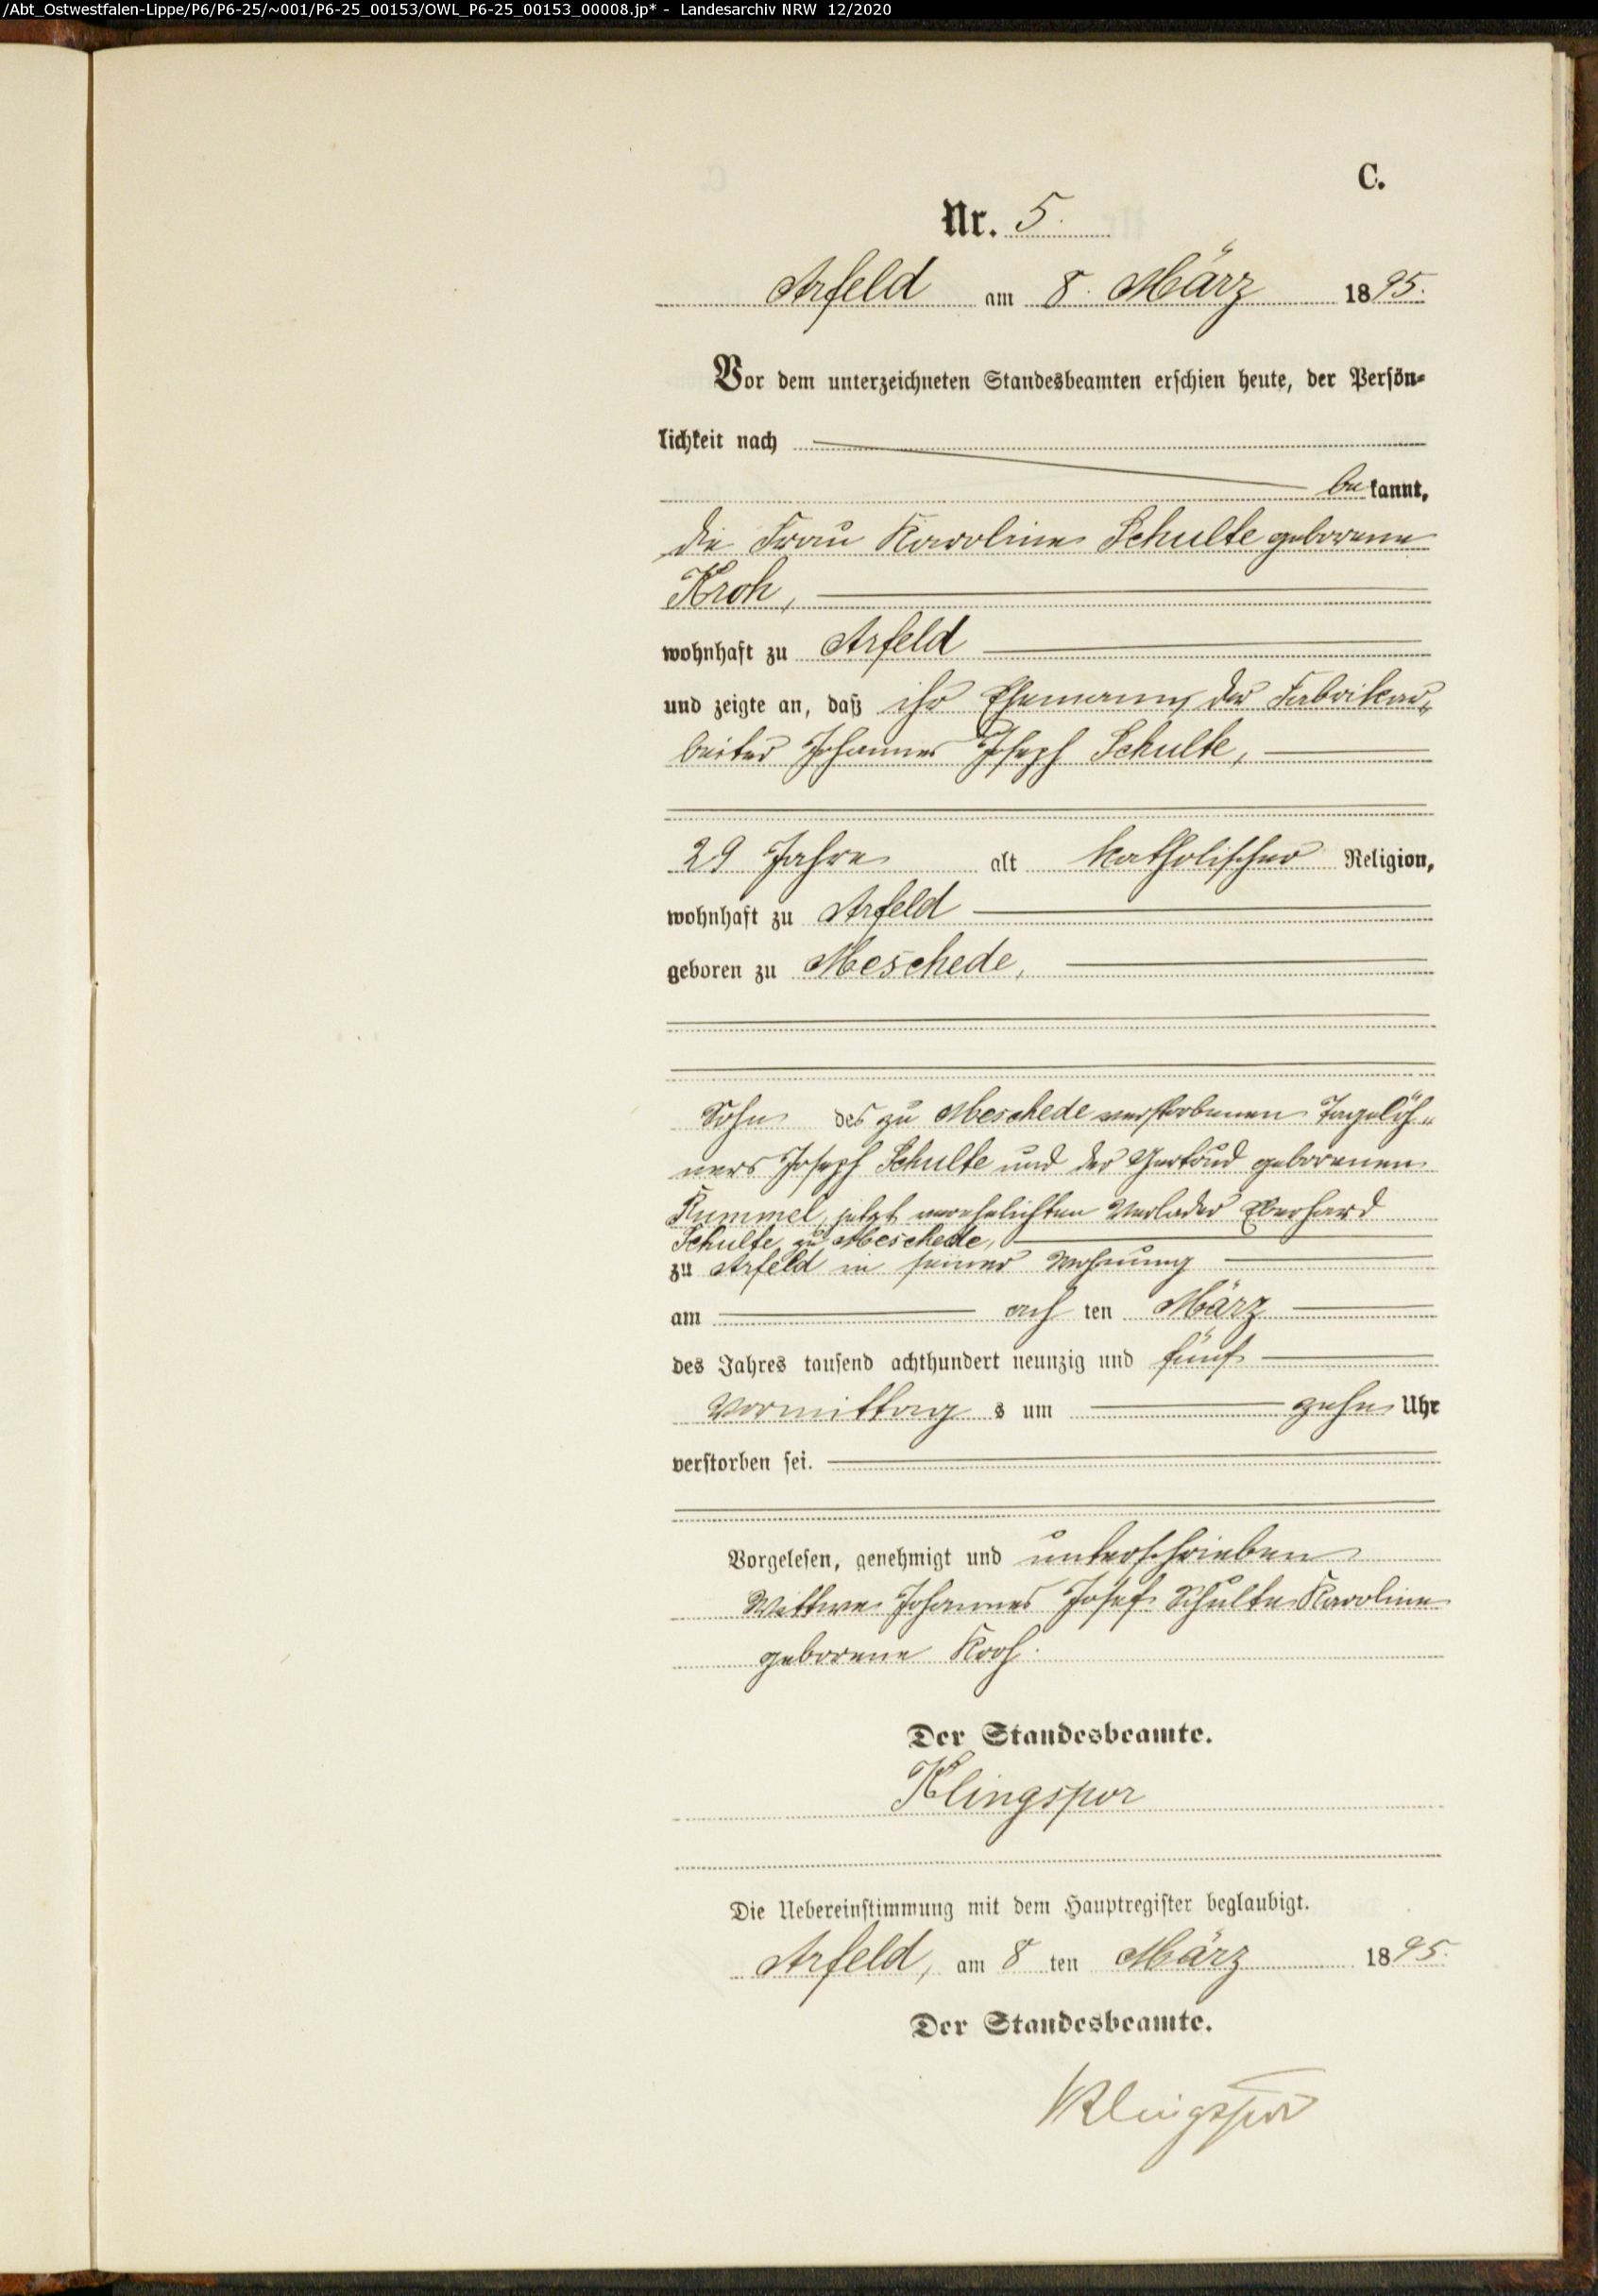 /Abt_Ostwestfalen-Lippe/P6/P6-25/~001/P6-25_00153/OWL_P6-25_00153_00008.jp* - Landesarchiv NRW 12/2020
C.
Nr. 5.
Arfeld am 8. März 1895.
Vor dem unterzeichneten Standesbeamten erschien heute, der Persön-
lichkeit nach
bekannt,
die Frau Karoline Schulte geborene
Kroh,
wohnhaft zu Arfeld
und zeigte an, daß ihr Ehemann, der Fabrikar-
beiter Johannes Joseph Schulte,
29 Jahre alt katholischer Religion,
wohnhaft zu Arfeld
geboren zu Meschede,
Sohn des zu Meschede verstorbenen Tagelöh-
ners Joseph Schulte und der Gertrud geborenen
Kummel, jetzt verehelichten Verlader Eberhard
Schulte zu Meschede,
zu Arfeld in seiner Wohnung
am achten März
des Jahres tausend achthundert neunzig und fünf
Vormittags um zehn Uhr
verstorben sei.
Vorgelesen, genehmigt und unterschrieben
Wittwe Johannes Josef Schulte Karoline
geborene Kroh.
Der Standesbeamte.
Klingspor
Die Uebereinstimmung mit dem Hauptregister beglaubigt.
Arfeld, am 8 ten März 1895.
Der Standesbeamte.
Klingspor